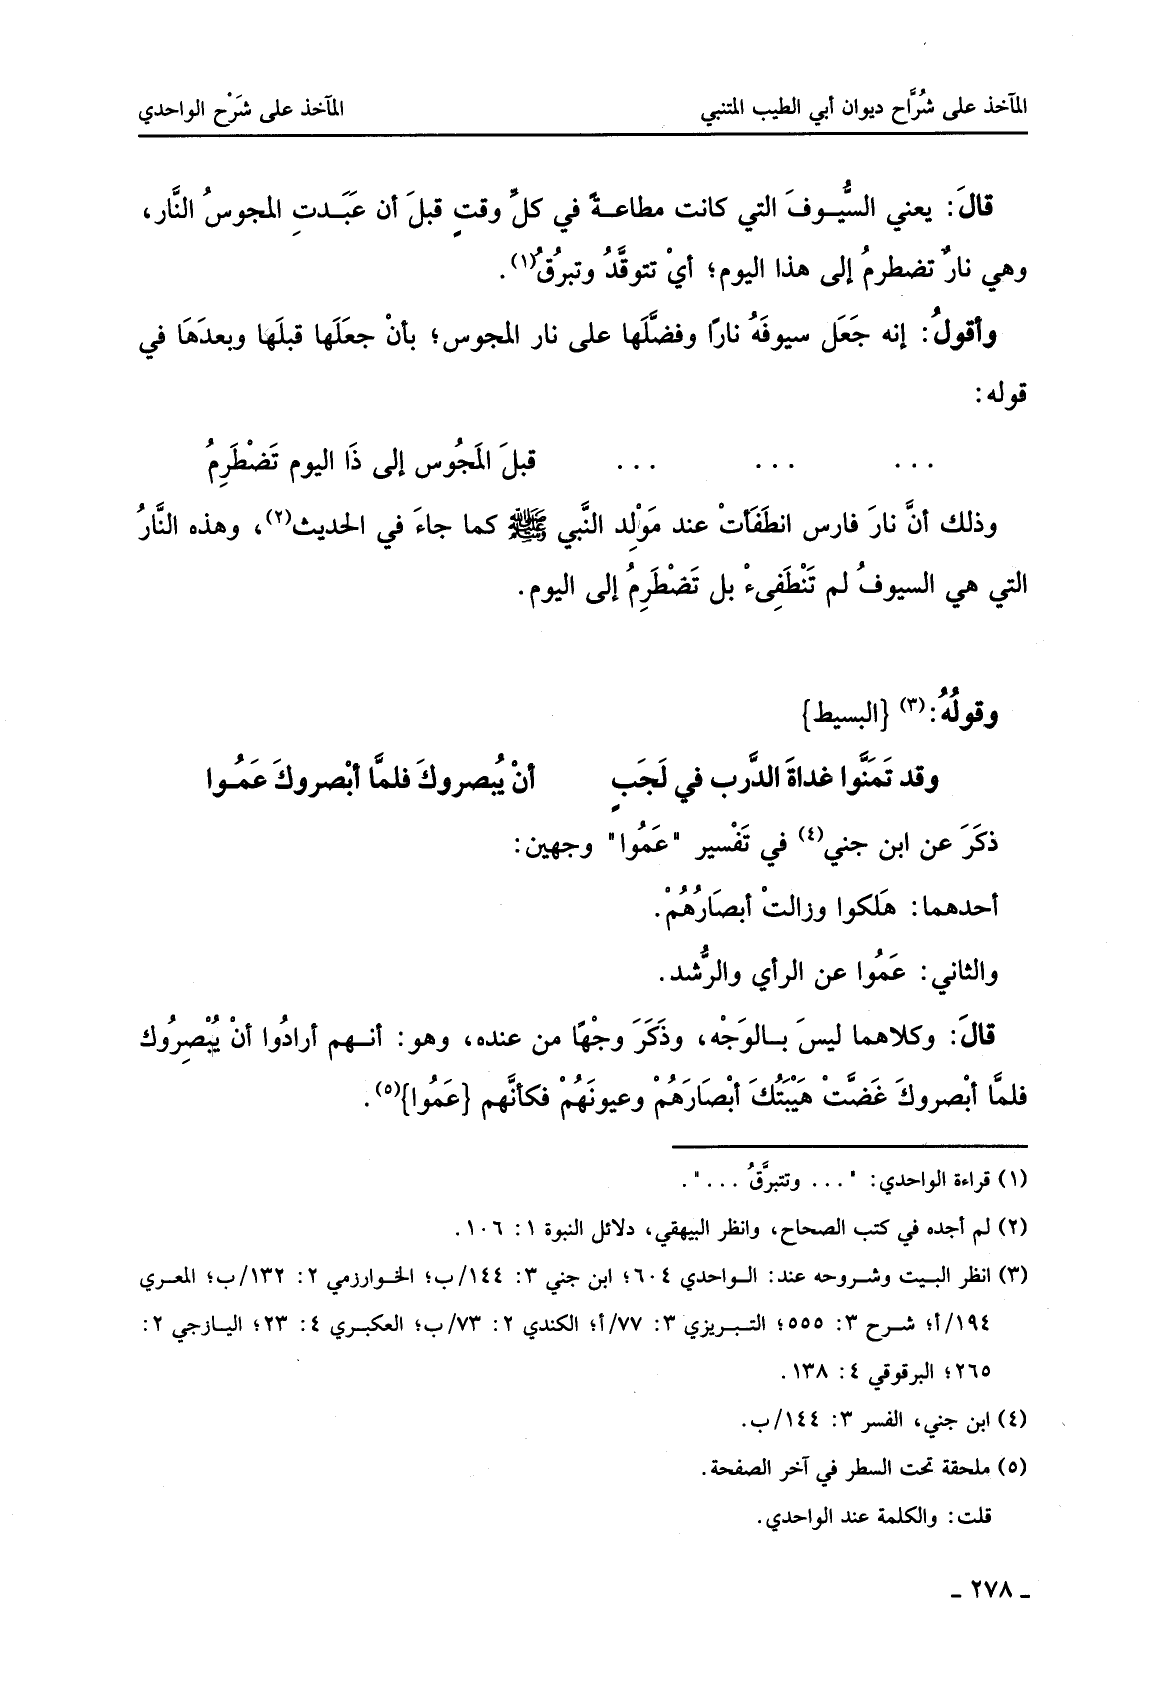 المآخذ على شُرَّاح ديوان أبي الطيب المتنبي المآخذ على شَرْح الواحدي
قالَ: يعني السُّيوفَ التي كانت مطاعةً في كلِّ وقتٍ قبلَ أن عَبَدتِ المجوسُ النَّار،
وهي نارٌ تضطرمُ إلى هذا اليوم؛ أيْ تتوقَّدُ وتبرُقُ(١).
وأقولُ: إنه جَعَل سيوفَهُ نارًا وفضَّلَها على نار المجوس؛ بأنْ جعَلَها قبلَها وبعدَهَا في
قوله:
... ... ... قبلَ المَجُوس إلى ذَا اليوم تَضْطَرِمُ
وذلك أنَّ نارَ فارس انطَفَأتْ عند مَوْلِد النَّبي ﷺ كما جاءَ في الحديث(٢)، وهذه النَّارُ
التي هي السيوفُ لم تَنْطَفِىءْ بل تَضْطَرِمُ إلى اليوم.
وقولُهُ:(٣) {البسيط}
وقد تَمَنَّوا غداةَ الدَّرب في لَجَبٍ أنْ يُبصروكَ فلمَّا أبْصروكَ عَمُوا
ذكَرَ عن ابن جني(٤) في تَفْسير "عَمُوا" وجهين:
أحدهما: هَلَكوا وزالتْ أبصَارُهُمْ.
والثاني: عَمُوا عن الرأي والرُّشد.
قالَ: وكلاهما ليسَ بالوَجْه، وذَكَرَ وجْهًا من عنده، وهو: أنهم أرادُوا أنْ يُبْصِرُوك
فلمَّا أبْصروكَ غَضَّتْ هَيْبَتُكَ أبْصَارَهُمْ وعيونَهُمْ فكأنَّهم {عَمُوا}(٥).
(١) قراءة الواحدي: "... وتتبرَّقُ ...".
(٢) لم أجده في كتب الصحاح، وانظر البيهقي، دلائل النبوة ١: ١٠٦.
(٣) انظر البيت وشروحه عند: الواحدي ٦٠٤؛ ابن جني ٣: ١٤٤/ب؛ الخوارزمي ٢: ١٣٢/ب؛ المعري
١٩٤/أ؛ شرح ٣: ٥٥٥؛ التبريزي ٣: ٧٧/أ؛ الكندي ٢: ٧٣/ب؛ العكبري ٤: ٢٣؛ اليازجي ٢:
٢٦٥؛ البرقوقي ٤: ١٣٨.
(٤) ابن جني، الفسر ٣: ١٤٤/ب.
(٥) ملحقة تحت السطر في آخر الصفحة.
قلت: والكلمة عند الواحدي.
ـ ٢٧٨ ـ